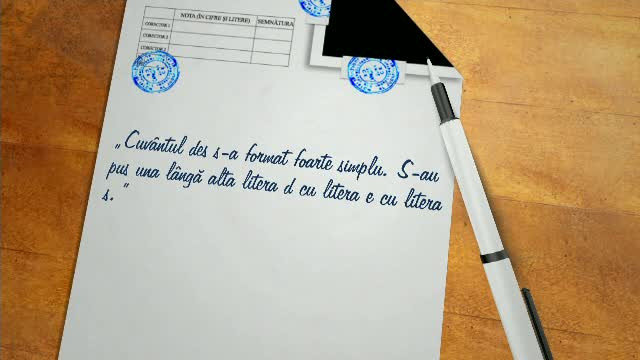 NOTA (ÎN CIFRE ȘI LITERE) SEMNĂTURA
CORECTOR 1
CORECTOR 2
CORECTOR 3
„Cuvântul des s-a format foarte simplu. S-au
pus una lângă alta litera d cu litera e cu litera
s. ”